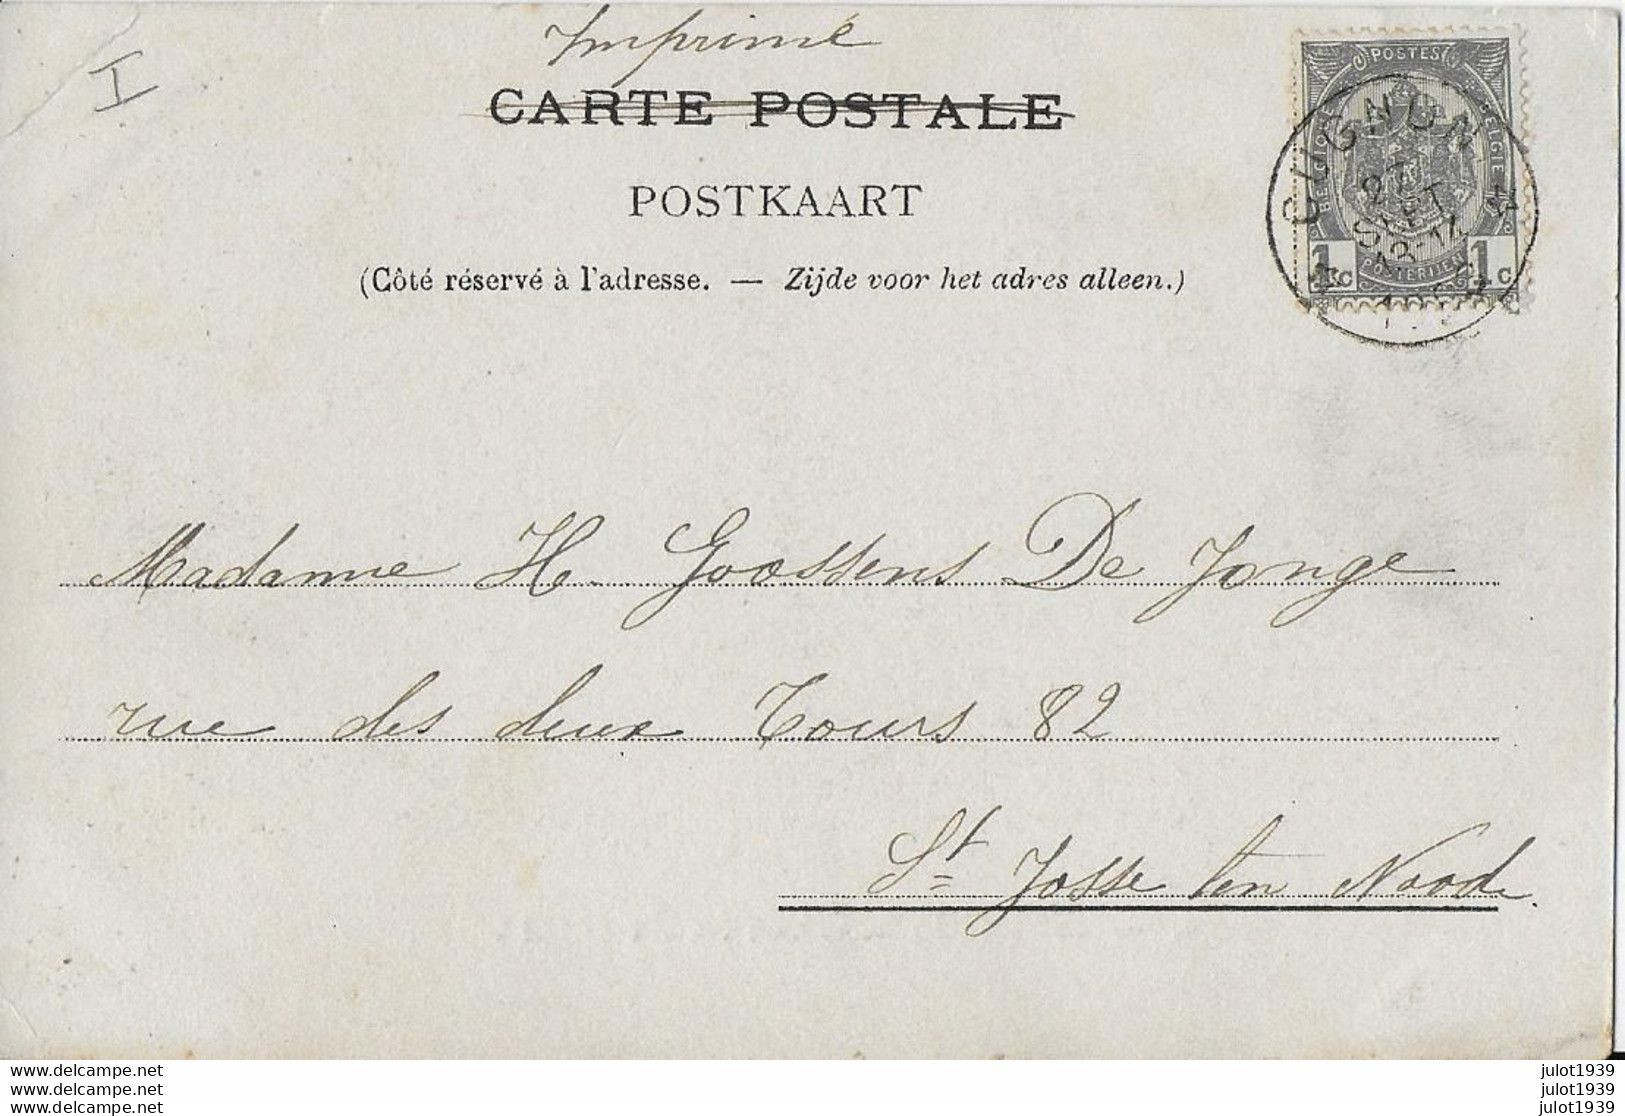 I
Imprimé
CARTE POSTALE
POSTKAART
(Côté réservé à l'adresse. — Zijde voor het adres alleen.)
POSTES
BELGIQUE
BELGIE
1c
1c
POSTERIJEN
CUGNON
SEPT
Madame H. Goossens De Jonge
rue des deux Tours 82
St Josse ten Noode.
www.delcampe.net
www.delcampe.net
www.delcampe.net
julot1939
julot1939
julot1939